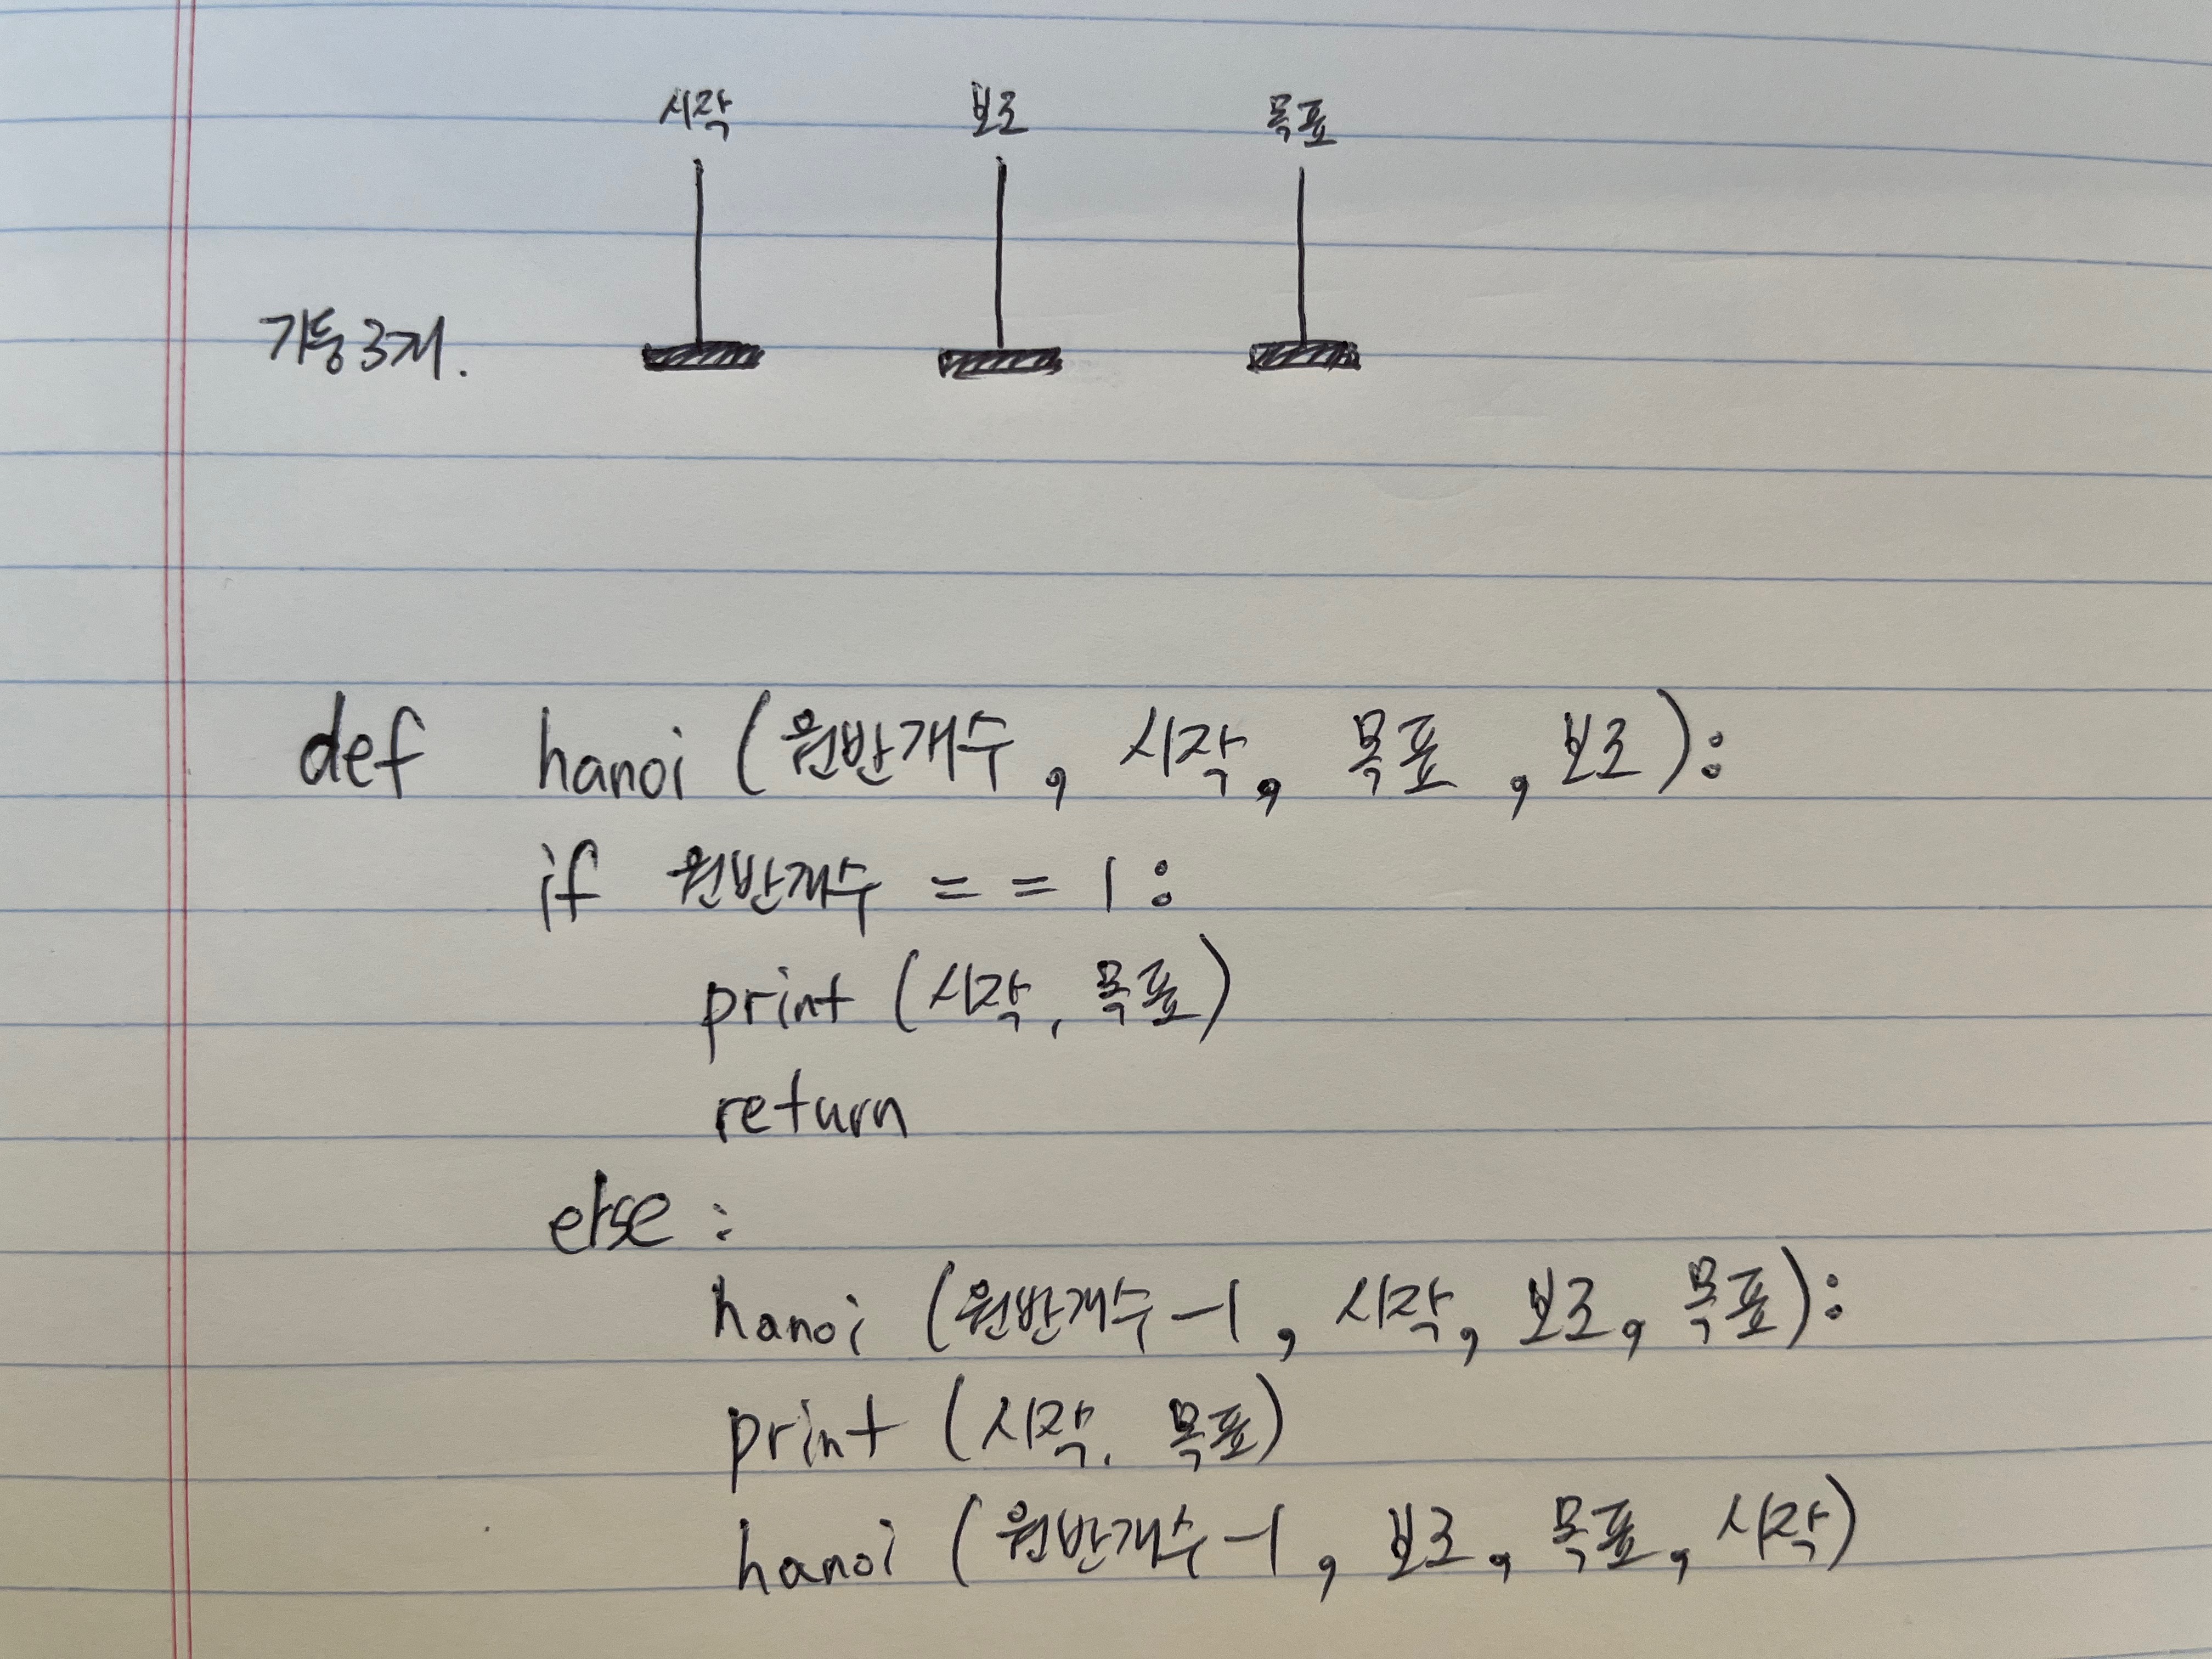 시작 보조 목표
기둥 3개.
def hanoi (원반개수, 시작, 목표, 보조):
if 원반개수 == 1:
print (시작, 목표)
return
else:
hanoi (원반개수-1, 시작, 보조, 목표):
print (시작, 목표)
hanoi (원반개수-1, 보조, 목표, 시작)